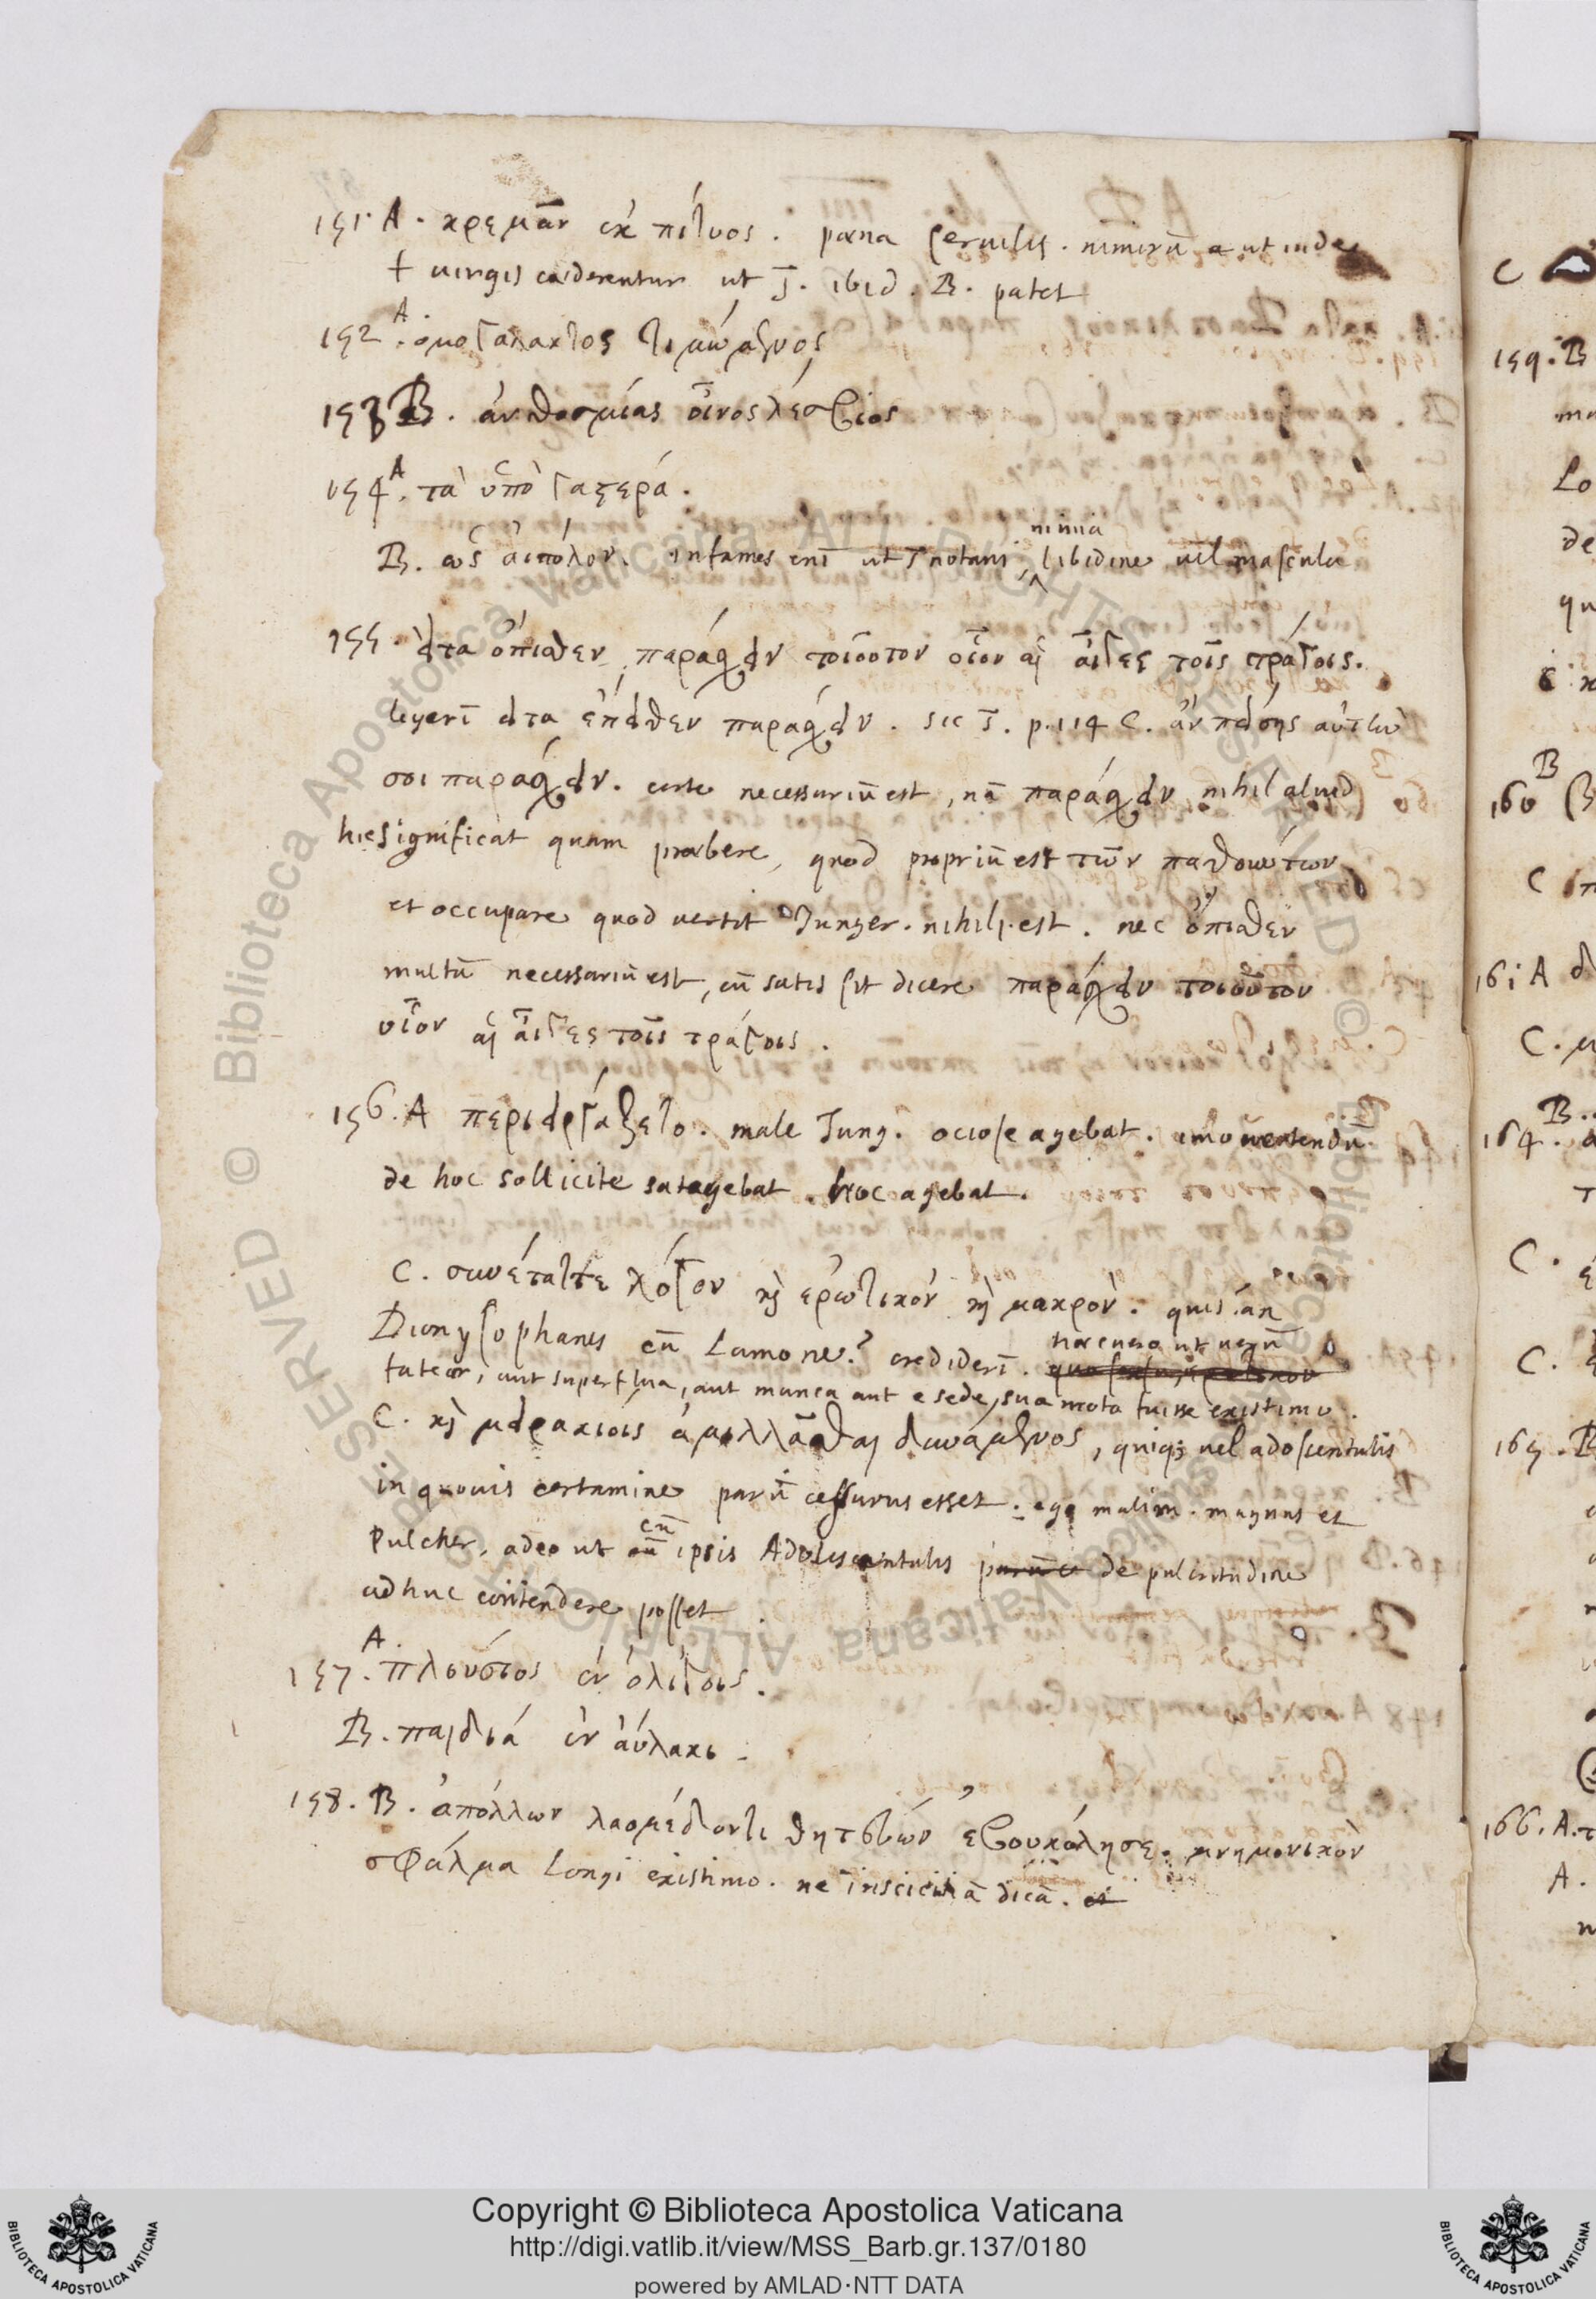 151. A. κρεμᾶν ἐκ πίτυος. pœna seruilis. nimirū aut inde
+ uirgis cæderentur ut J. ibid. B. patet
152. A. ὁμογάλακτος τιμώμενος
153 B. ἀνθοσμίας οἶνος λέσβιος
154 A. τὰ ὑπὸ γαστέρα.
B. ὡς αἰπόλον. infames enī ut J notant nimia libidine uel mascula
155. εἶτα ὄπισθεν παρασχεῖν τοιοῦτον οἷον αἱ αἶγες τοῖς τράγοις.
legerī εἶτα παρασχεῖν. sic J. p. 114 C. ἂν πείσῃς αὐτὼ
σοι παρασχεῖν. certe necessariū est, nā παρασχεῖν nihil aliud
hic significat quam præbere, quod propriū est τῶν
et occupare quod uertit Junger. nihili est. nec ὄπισθεν
multū necessariū est, cū satis sit dicere παρασχεῖν τοιοῦτον
οἷον αἱ αἶγες τοῖς τράγοις.
156. A περιειργάζετο. male Jung. ociose agebat. imo uertendū
de hoc sollicite satagebat. hoc agebat.
C. συνέταττε λόγον καὶ ἐρωτικὸν καὶ μακρόν. quis? an
Dionysophanes cū Lamone? crediderī. hæc enero ut uerū
fatear, aut superflua, aut manca aut e sede sua mota fuisse existimo.
C. καὶ μειρακίοις ἁμιλλᾶσθαι δυνάμενος, quiq; uel adolescentulis
in quouis certamine parū cessurus esset. ego malim. magnus et
pulcher, adeo ut cū ipsis Adolescentulis de pulcritudine
adhuc contendere posset
157. A. πλούσιος ἐν ὀλίγοις.
B. παιδιά ἐν αὔλακι.
158. B. ἀπόλλων λαομέδοντι θητεύων ἐβουκόλησε. μνημονικὸν
σφάλμα Longi existimo. ne insciciā dicā.
C
159. B
ma
Lo
de
qu
160 B
C
161 A
C.
B.
164.
C.
C.
165. B
166. A. τ
A.
© Biblioteca Apostolica Vaticana ALL RIGHTS RESERVED
BIBLIOTECA APOSTOLICA VATICANA
Copyright © Biblioteca Apostolica Vaticana
http://digi.vatlib.it/view/MSS_Barb.gr.137/0180
powered by AMLAD·NTT DATA
BIBLIOTECA APOSTOLICA VATICANA